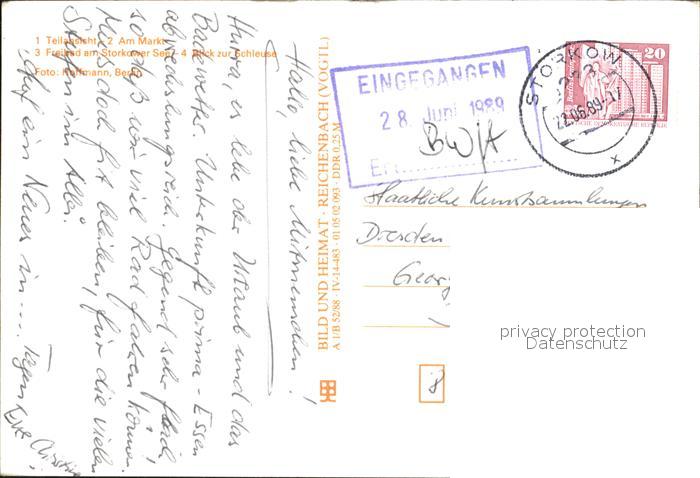 1 Teilansicht 2 Am Markt
3 Freibad am Storkower See 4 Blick zur Schleuse
Foto: Hoffmann, Berlin
Hallo, liebe Mitmenschen!
Hurra, es lebe der Urlaub und das
Badewetter. Unterkunft prima - Essen
abwechslungsreich. Gegend sehr
so daß wir viel Rad fahren können.
Muss doch fit bleiben, für die vielen
Stufen im
Auf ein Neues in .... Tagen
Eure
BILD UND HEIMAT · REICHENBACH (VOGTL)
A 1/B 52/88 · IV-14-483 · 01 05 02 093 · DDR 0,25 M
EINGEGANGEN
28. Juni 1989
Erl.
STORKOW
22.06.89-17
20
Staatliche Kunstsammlungen
Dresden
Georg
8
privacy protection
Datenschutz